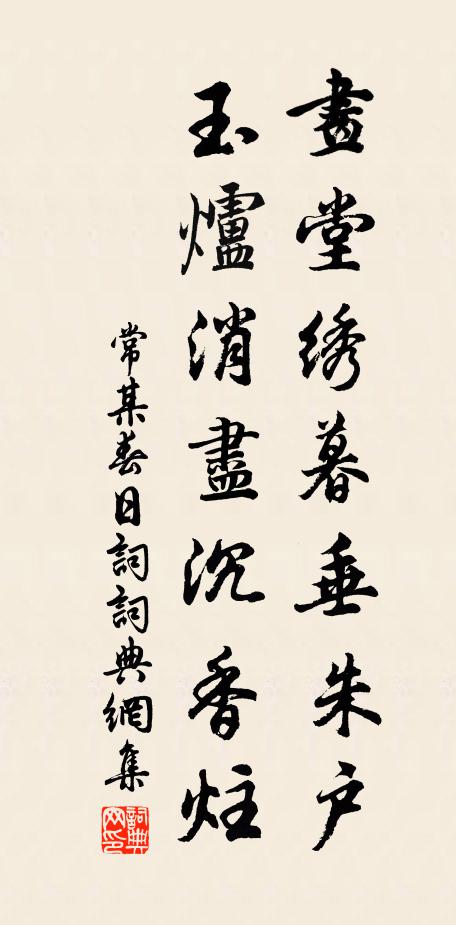 畫堂綉暮垂朱户
玉爐消盡沉香炷
常某春日詞詞典網集
詞典网印